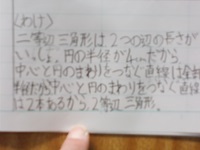 〈わけ〉
二等辺三角形は2つの辺の長さが
いっしょ。円の半径が だから
中心と円のまわりをつなぐ直線は全部
半径だ 中心と円のまわりをつなぐ直線
は2本あるから、2等辺三角形。